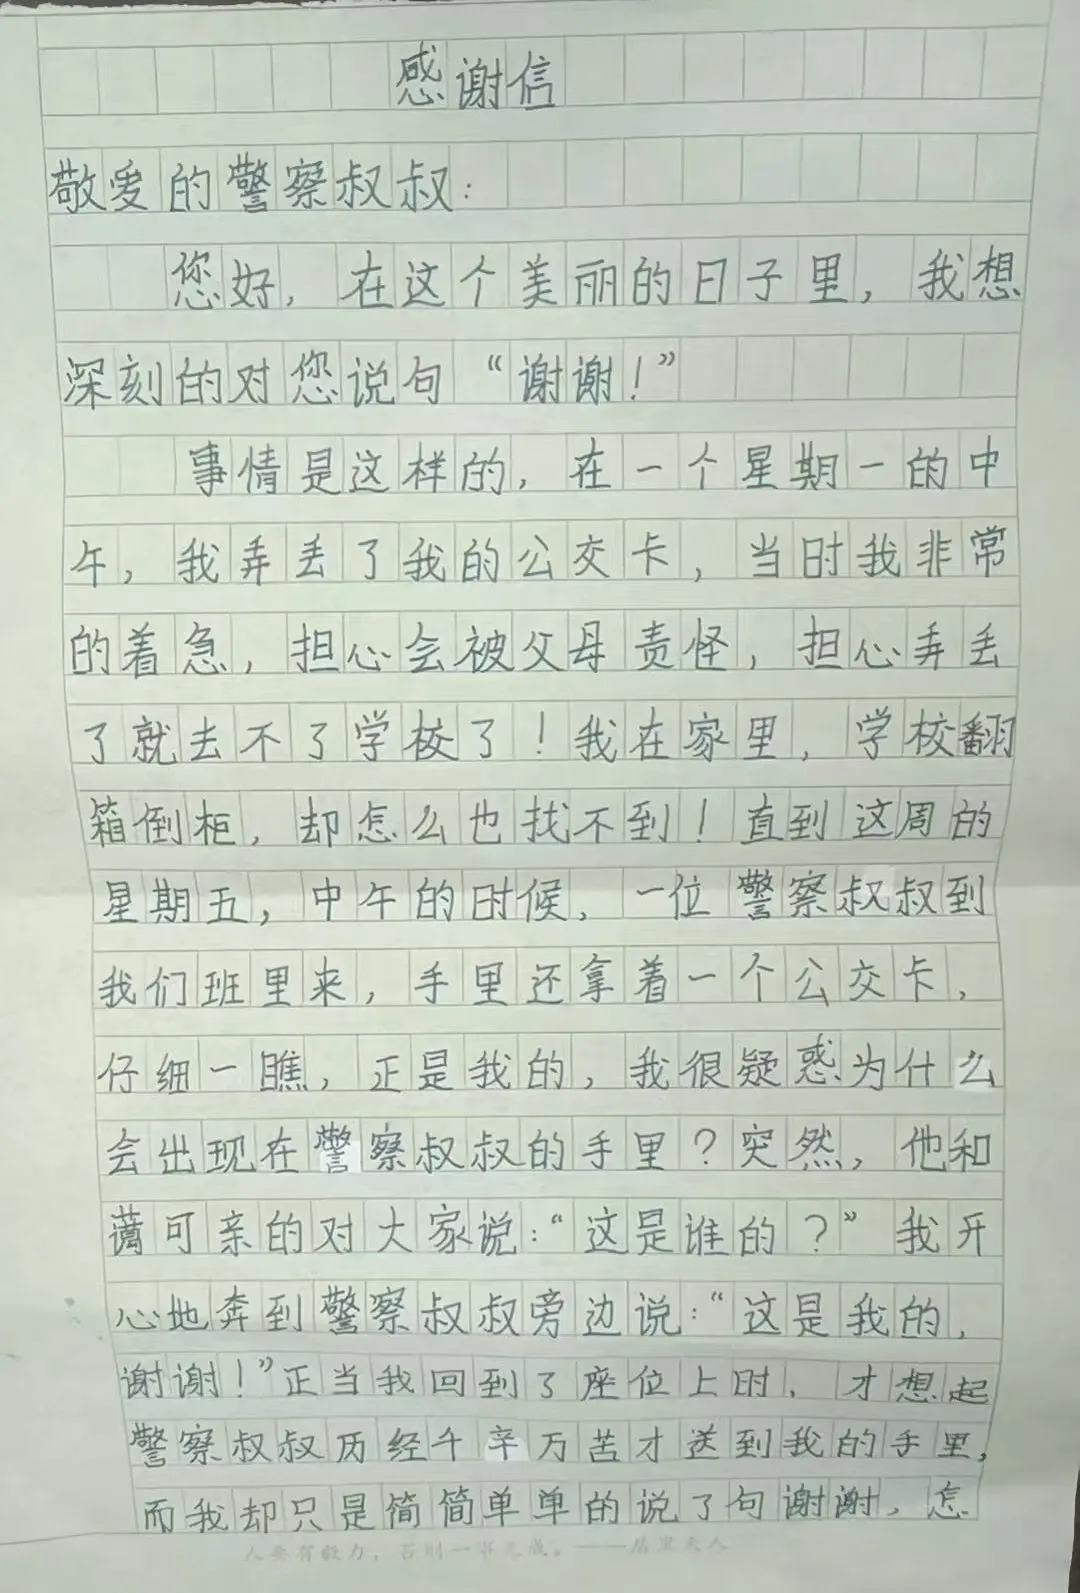 感谢信
敬爱的警察叔叔：
您好，在这个美丽的日子里，我想
深刻的对您说句“谢谢！”
事情是这样的，在一个星期一的中
午，我弄丢了我的公交卡，当时我非常
的着急，担心会被父母责怪，担心弄丢
了就去不了学校了！我在家里，学校翻
箱倒柜，却怎么也找不到！直到这周的
星期五，中午的时候，一位警察叔叔到
我们班里来，手里还拿着一个公交卡，
仔细一瞧，正是我的，我很疑惑为什么
会出现在警察叔叔的手里？突然，他和
蔼可亲的对大家说：“这是谁的？”我开
心地奔到警察叔叔旁边说：“这是我的，
谢谢！”正当我回到了座位上时，才想起
警察叔叔历经千辛万苦才送到我的手里，
而我却只是简简单单的说了句谢谢，怎
人要有毅力，否则一事无成。——居里夫人